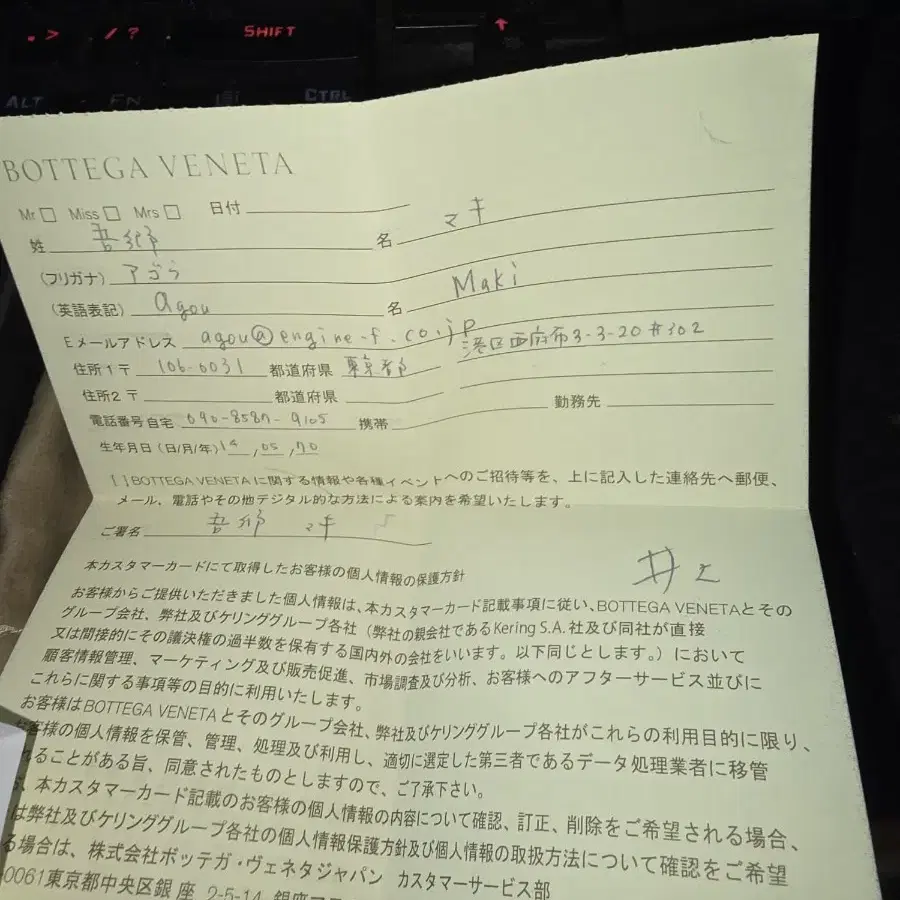 . > . / ? . SHIFT
ALT FN CTRL
BOTTEGA VENETA
Mr □ Miss □ Mrs □ 日付
姓 吾郷 名 マキ
(フリガナ) アゴウ
(英語表記) agou 名 Maki
Eメールアドレス agou@engine-f.co.jp
住所1〒 106-0031 都道府県 東京都 港区西麻布3-3-20#302
住所2〒 都道府県
電話番号 自宅 090-8587-9105 携帯 勤務先
生年月日 (日/月/年) 14,05,70
[ ] BOTTEGA VENETA に関する情報や各種イベントへのご招待等を、上に記入した連絡先へ郵便、
メール、電話やその他デジタル的な方法による案内を希望いたします。
ご署名 吾郷 マキ
井上
本カスタマーカードにて取得したお客様の個人情報の保護方針
お客様からご提供いただきました個人情報は、本カスタマーカード記載事項に従い、BOTTEGA VENETAとその
グループ会社、弊社及びケリンググループ各社 (弊社の親会社であるKering S.A. 社及び同社が直接
又は間接的にその議決権の過半数を保有する国内外の会社をいいます。以下同じとします。) において
顧客情報管理、マーケティング及び販売促進、市場調査及び分析、お客様へのアフターサービス並びに
これらに関する事項等の目的に利用いたします。
お客様は BOTTEGA VENETA とそのグループ会社、弊社及びケリンググループ各社がこれらの利用目的に限り、
お客様の個人情報を保管、管理、処理及び利用し、適切に選定した第三者であるデータ処理業者に移管
れることがある旨、同意されたものとしますので、ご了承下さい。
、本カスタマーカード記載のお客様の個人情報の内容について確認、訂正、削除をご希望される場合、
は弊社及びケリンググループ各社の個人情報保護方針及び個人情報の取扱方法について確認をご希望
る場合は、株式会社ボッテガ・ヴェネタジャパン カスタマーサービス部
0061東京都中央区銀座 2-5-14 銀座